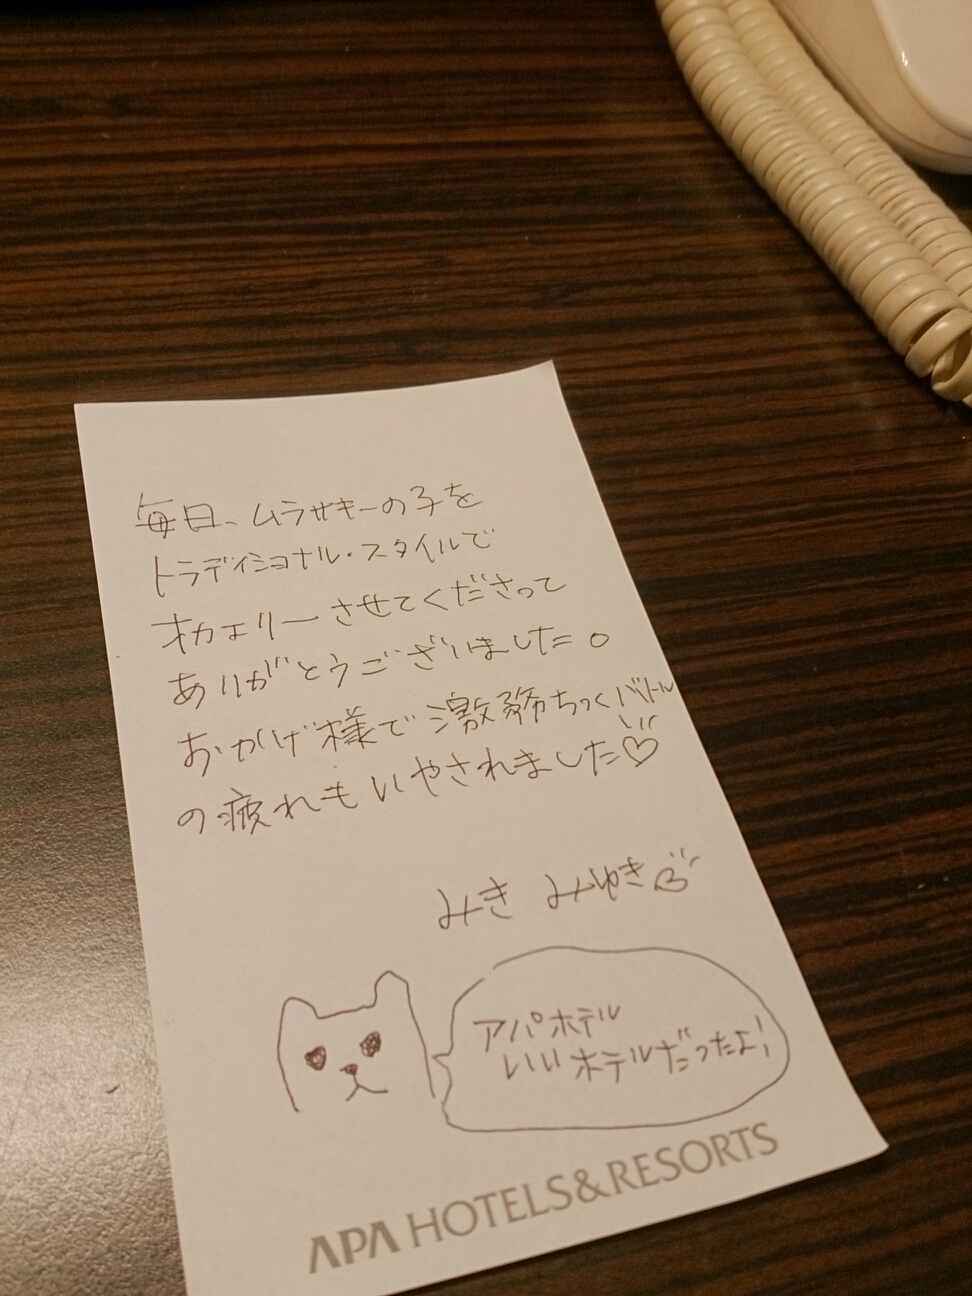 毎日、ムラサキーの子を
トラディショナル・スタイルで
オカエリーさせてくださって
ありがとうございました。
おかげ様で激務ちっくバトル
の疲れもいやされました♡
みき みゆき
アパホテル
いいホテルだったよ!
APA HOTELS&RESORTS